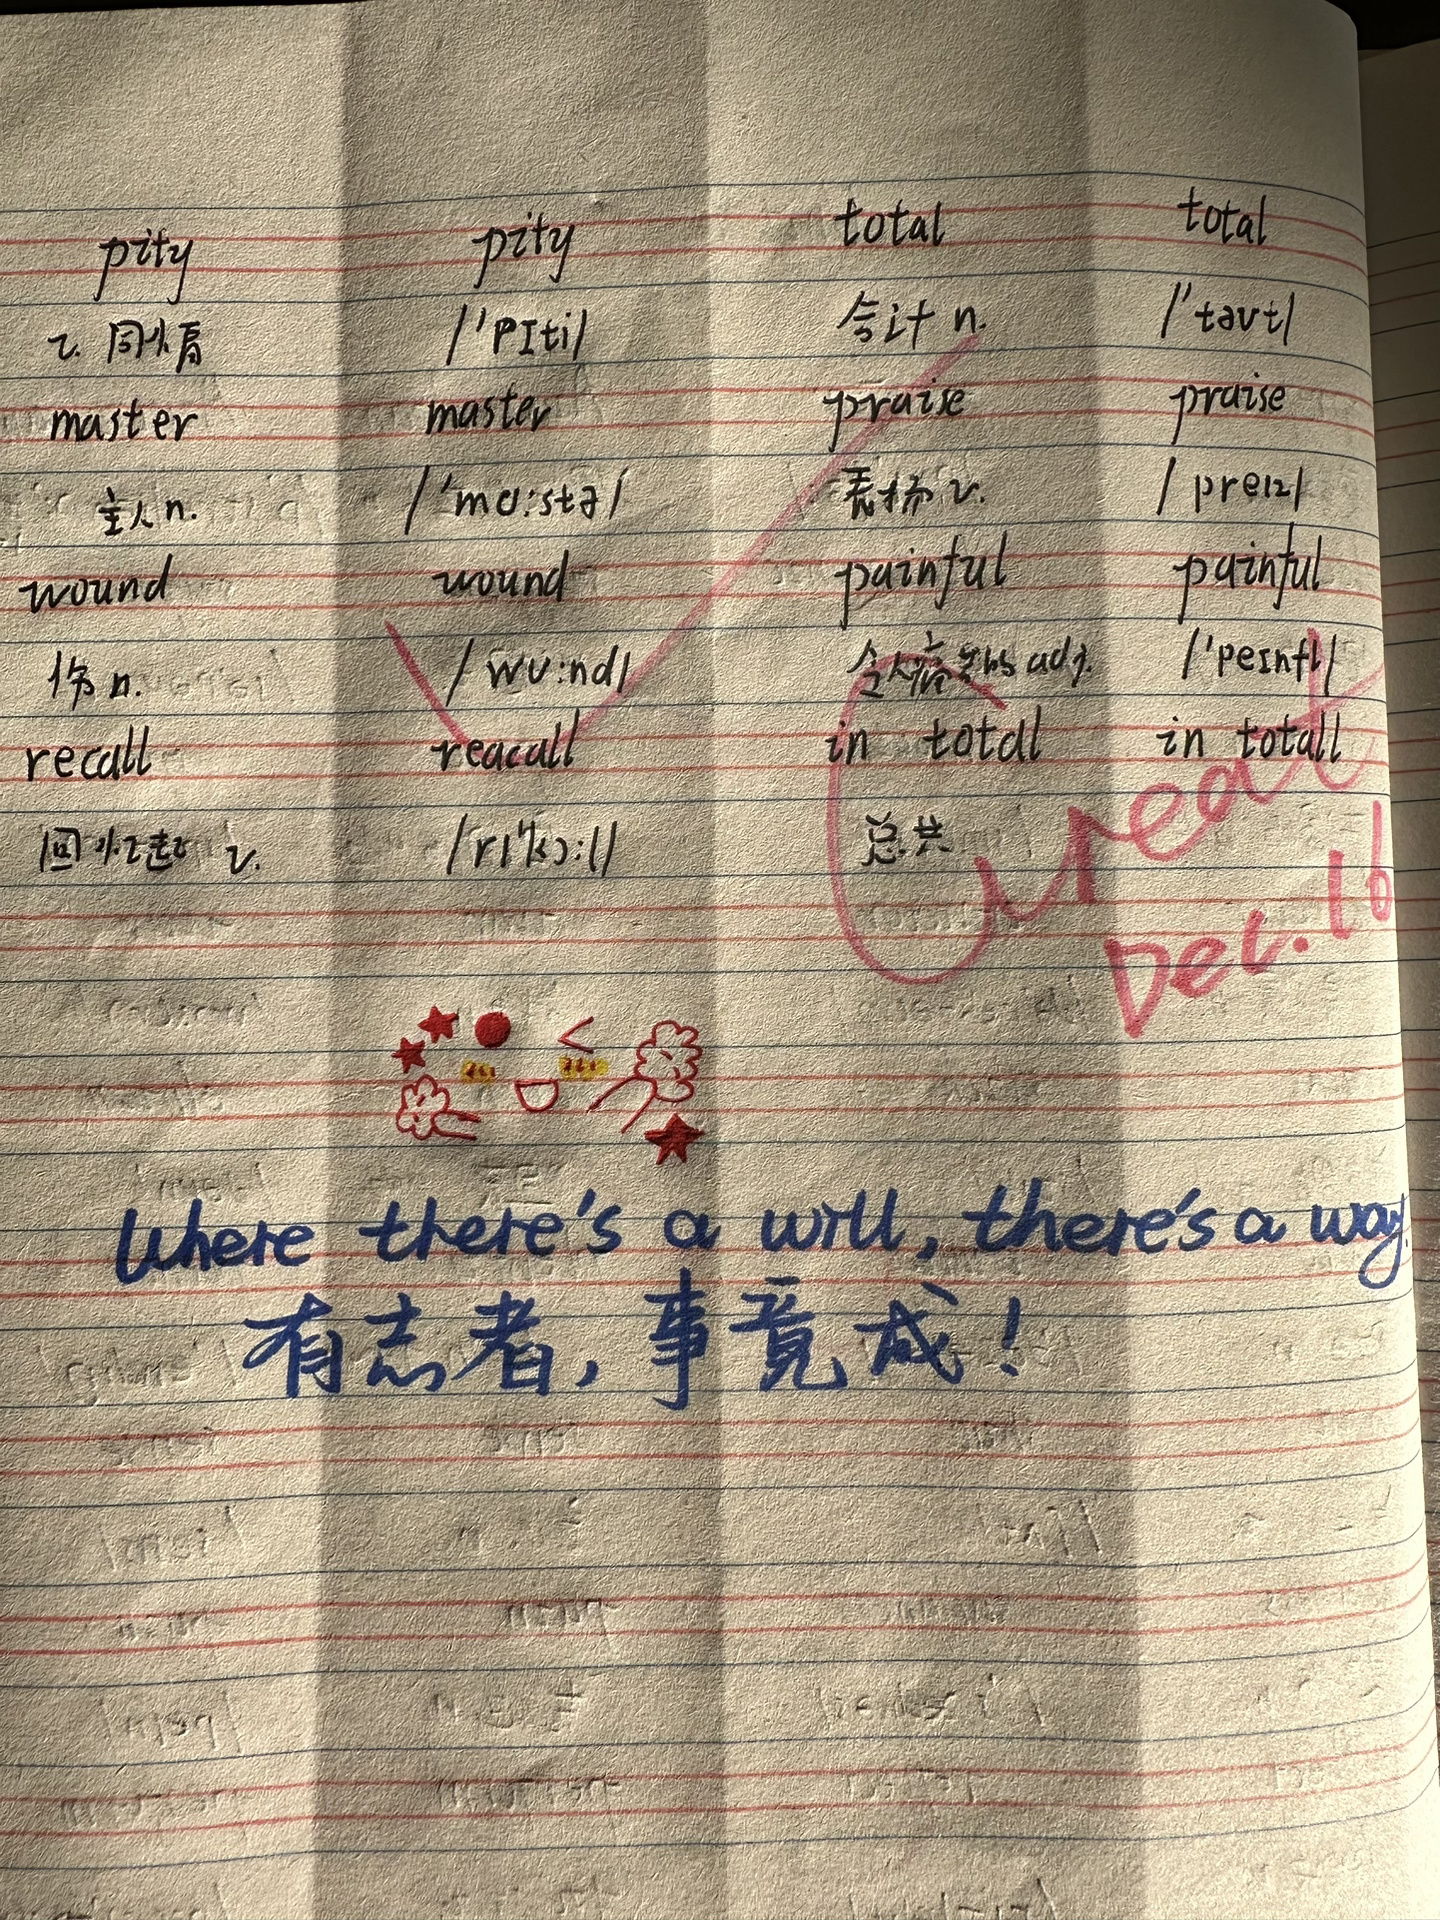 pity pity total total
v. 同情 /'pɪti/ 合计 n. /'təʊt/
master master praise praise
主人 n. /'mɑ:stə/ 表扬 v. /preɪz/
wound wound painful painful
伤 n. /wu:nd/ 令人痛苦的 adj. /'peɪnfl/
recall reacall in total in totall
回忆起 v. /rɪ'kɔ:l/ 总共
Great
Dec. 16
Where there's a will, there's a way.
有志者，事竟成！